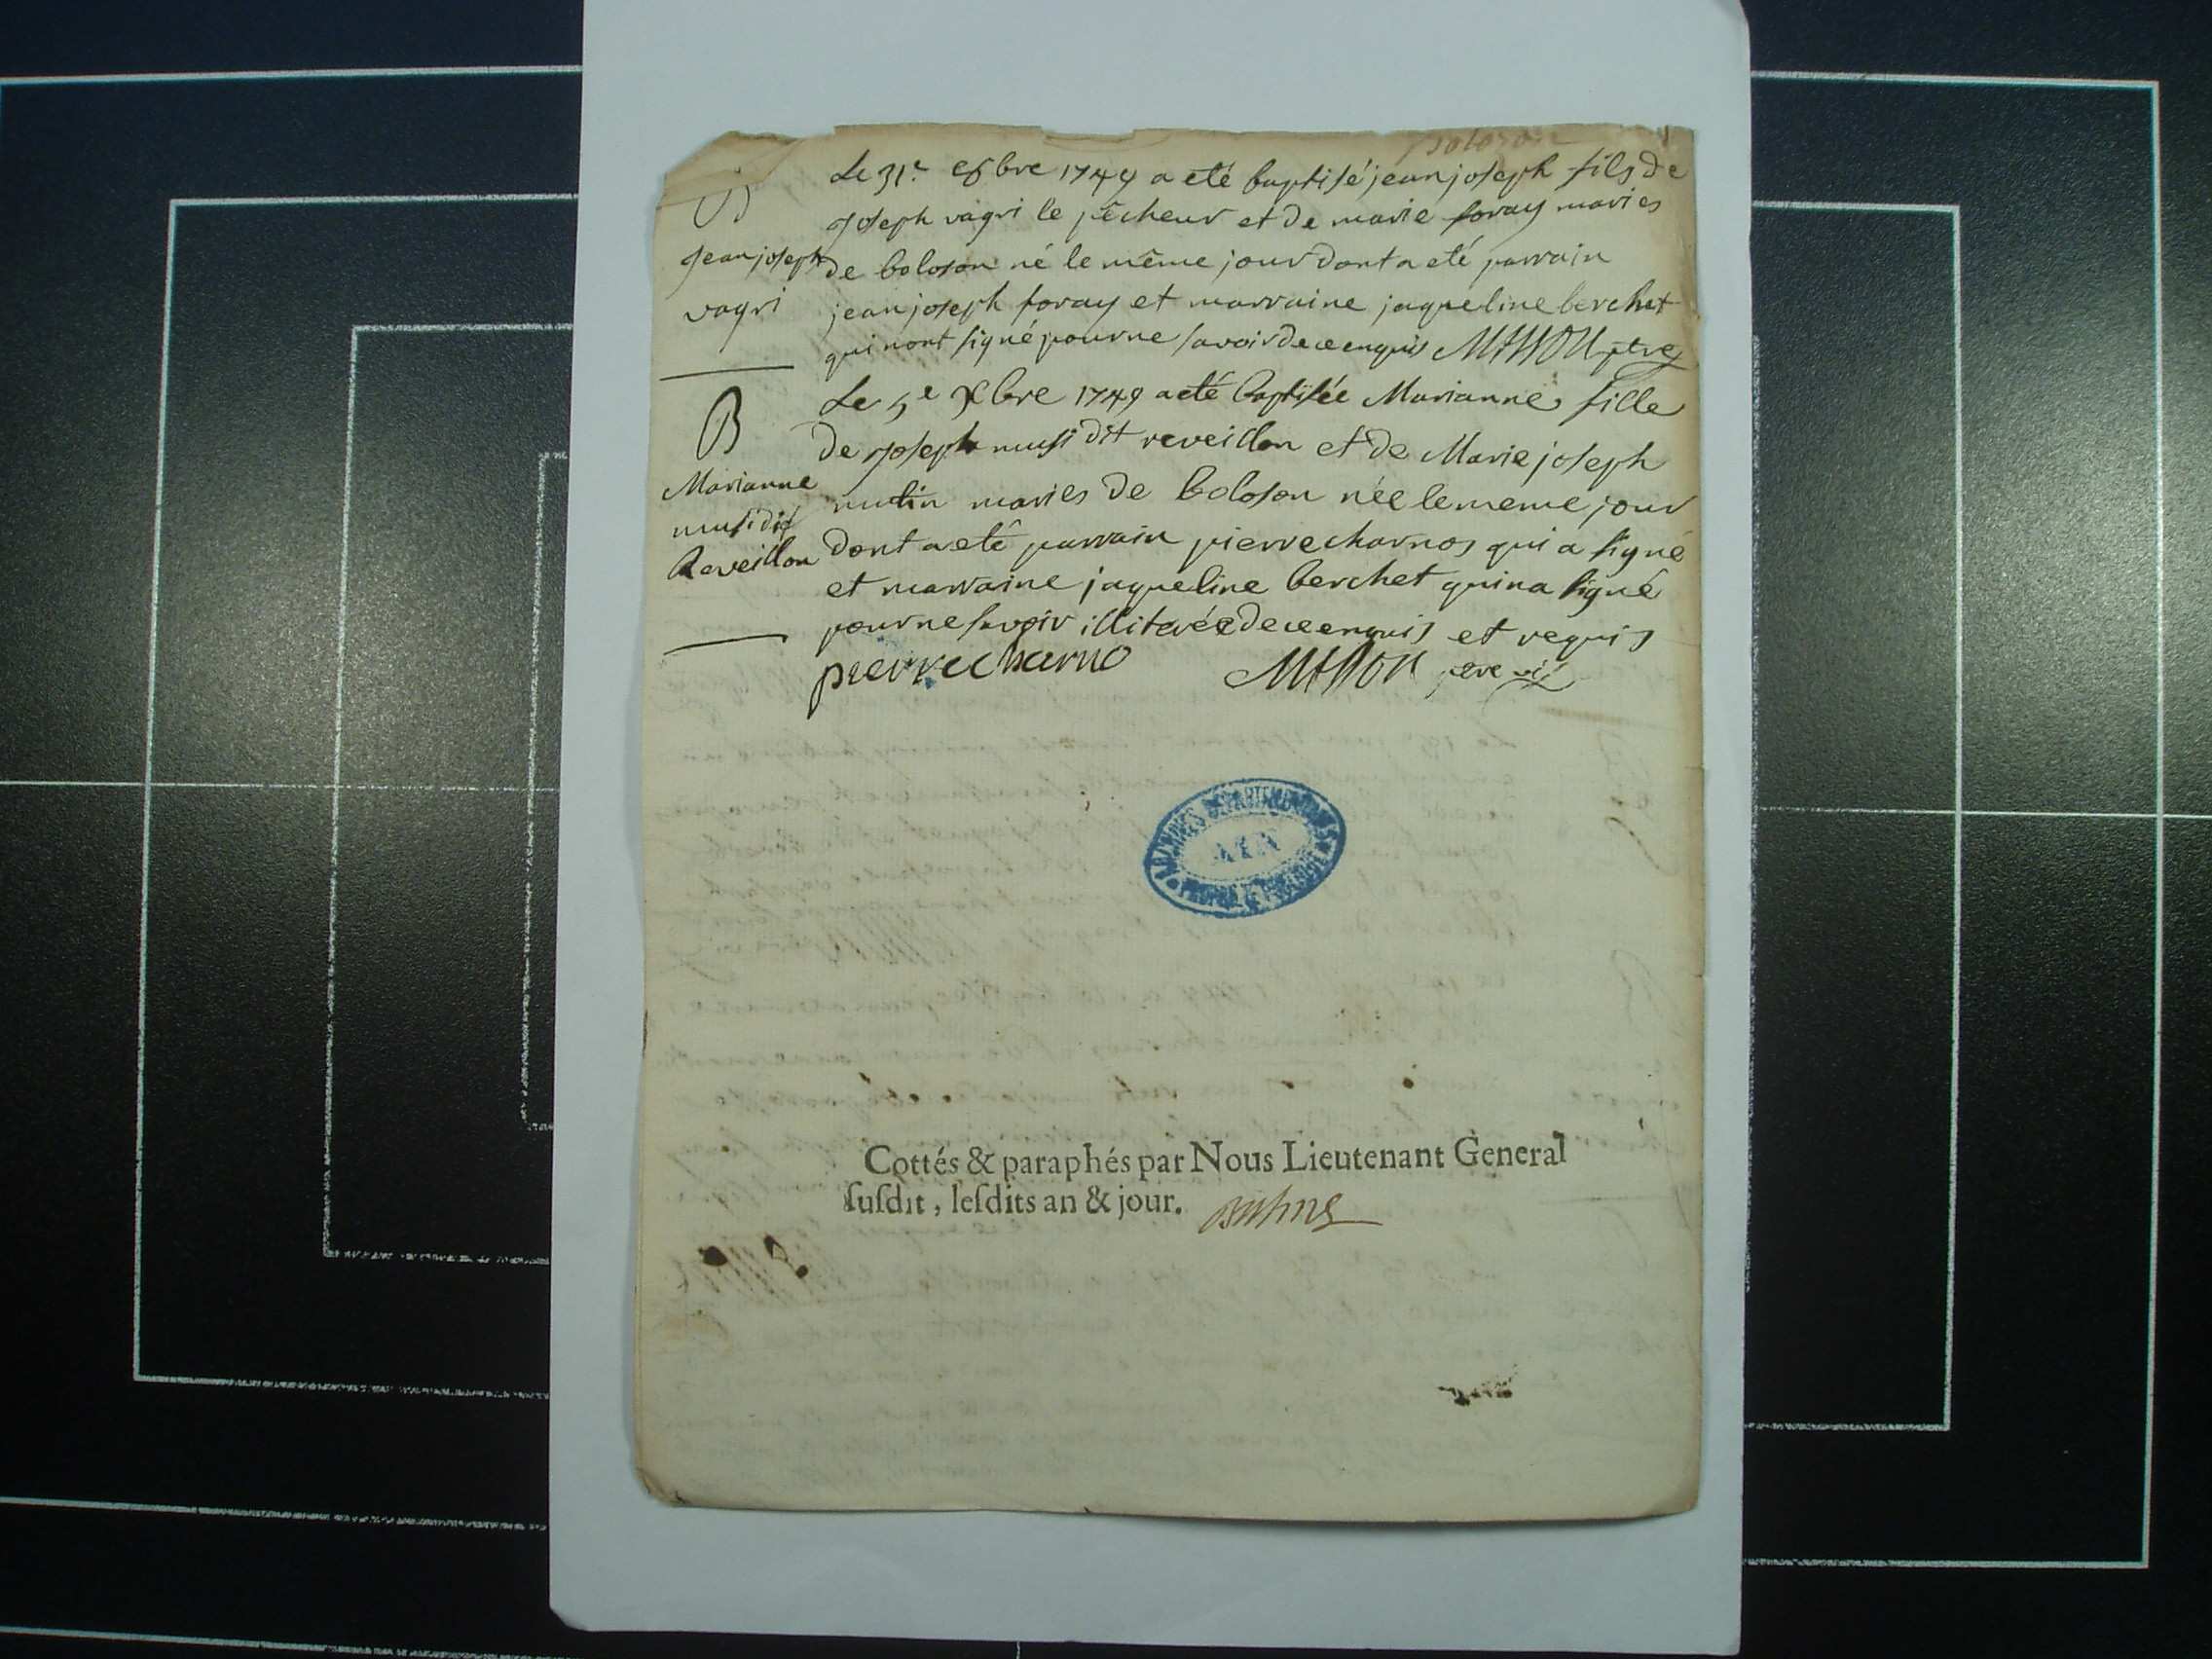 Boloson
Le 31e 8bre 1749 a eté baptisé jean joseph fils de
joseph vagri le pêcheur et de marie foray maries
de boloson né le même jour dont a eté parrain
jean joseph foray et marraine jaqueline berchet
qui nont signé pour ne savoir de ce enquis
B
jean joseph
vagri
Le 5e Xbre 1749 a eté baptisée Marianne fille
de joseph musi dit reveillon et de Marie joseph
mutin maries de boloson née le meme jour
dont a eté parrain pierre charnos qui a signé
et marraine jaqueline berchet qui na signé
pour ne savoir illiterée de ce enquis et requis
B
Marianne
musi dit
Reveillon
pierre charno
ARCHIVES DÉPARTEMENTALES
AIN
Cottés & paraphés par Nous Lieutenant General
susdit, lesdits an & jour.